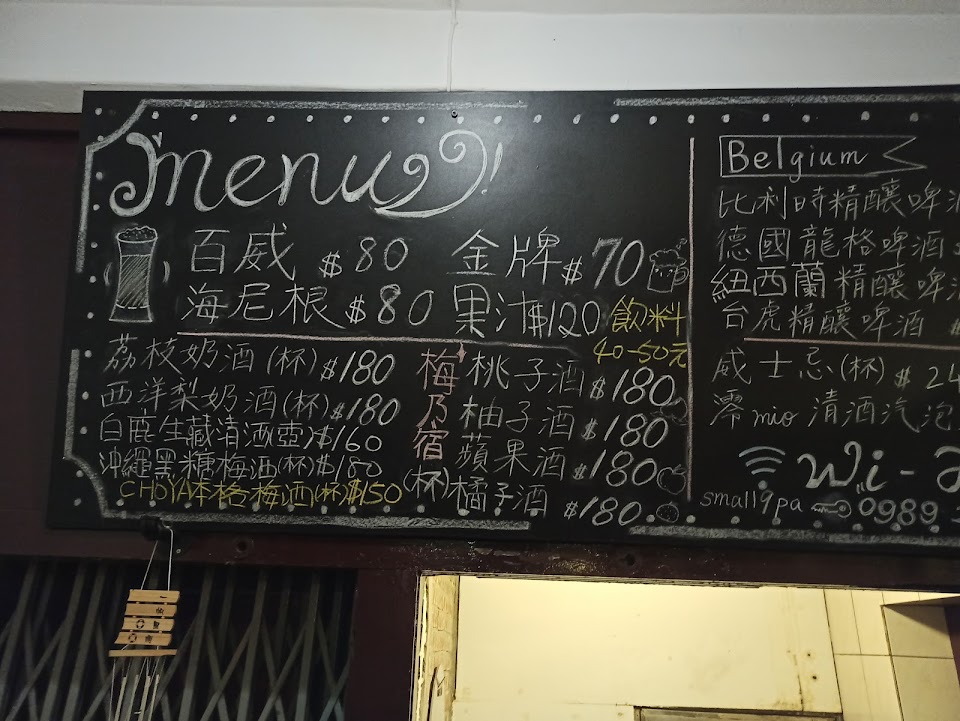 menu!
百威 $80 金牌 $70
海尼根 $80 果汁 $120 飲料
40-50元
荔枝奶酒(杯)$180
西洋梨奶酒(杯)$180
白鹿生藏清酒(壺)$160
沖繩黑糖梅酒(杯)$180
CHOYA本格梅酒(杯)$150
梅乃宿(杯)
桃子酒 $180
柚子酒 $180
蘋果酒 $180
橘子酒 $180
Belgium
比利時精釀啤酒
德國龍格啤酒
紐西蘭精釀啤酒
台虎精釀啤酒 $
威士忌(杯) $24
澪mio清酒汽泡
Wi-
small9pa 0989